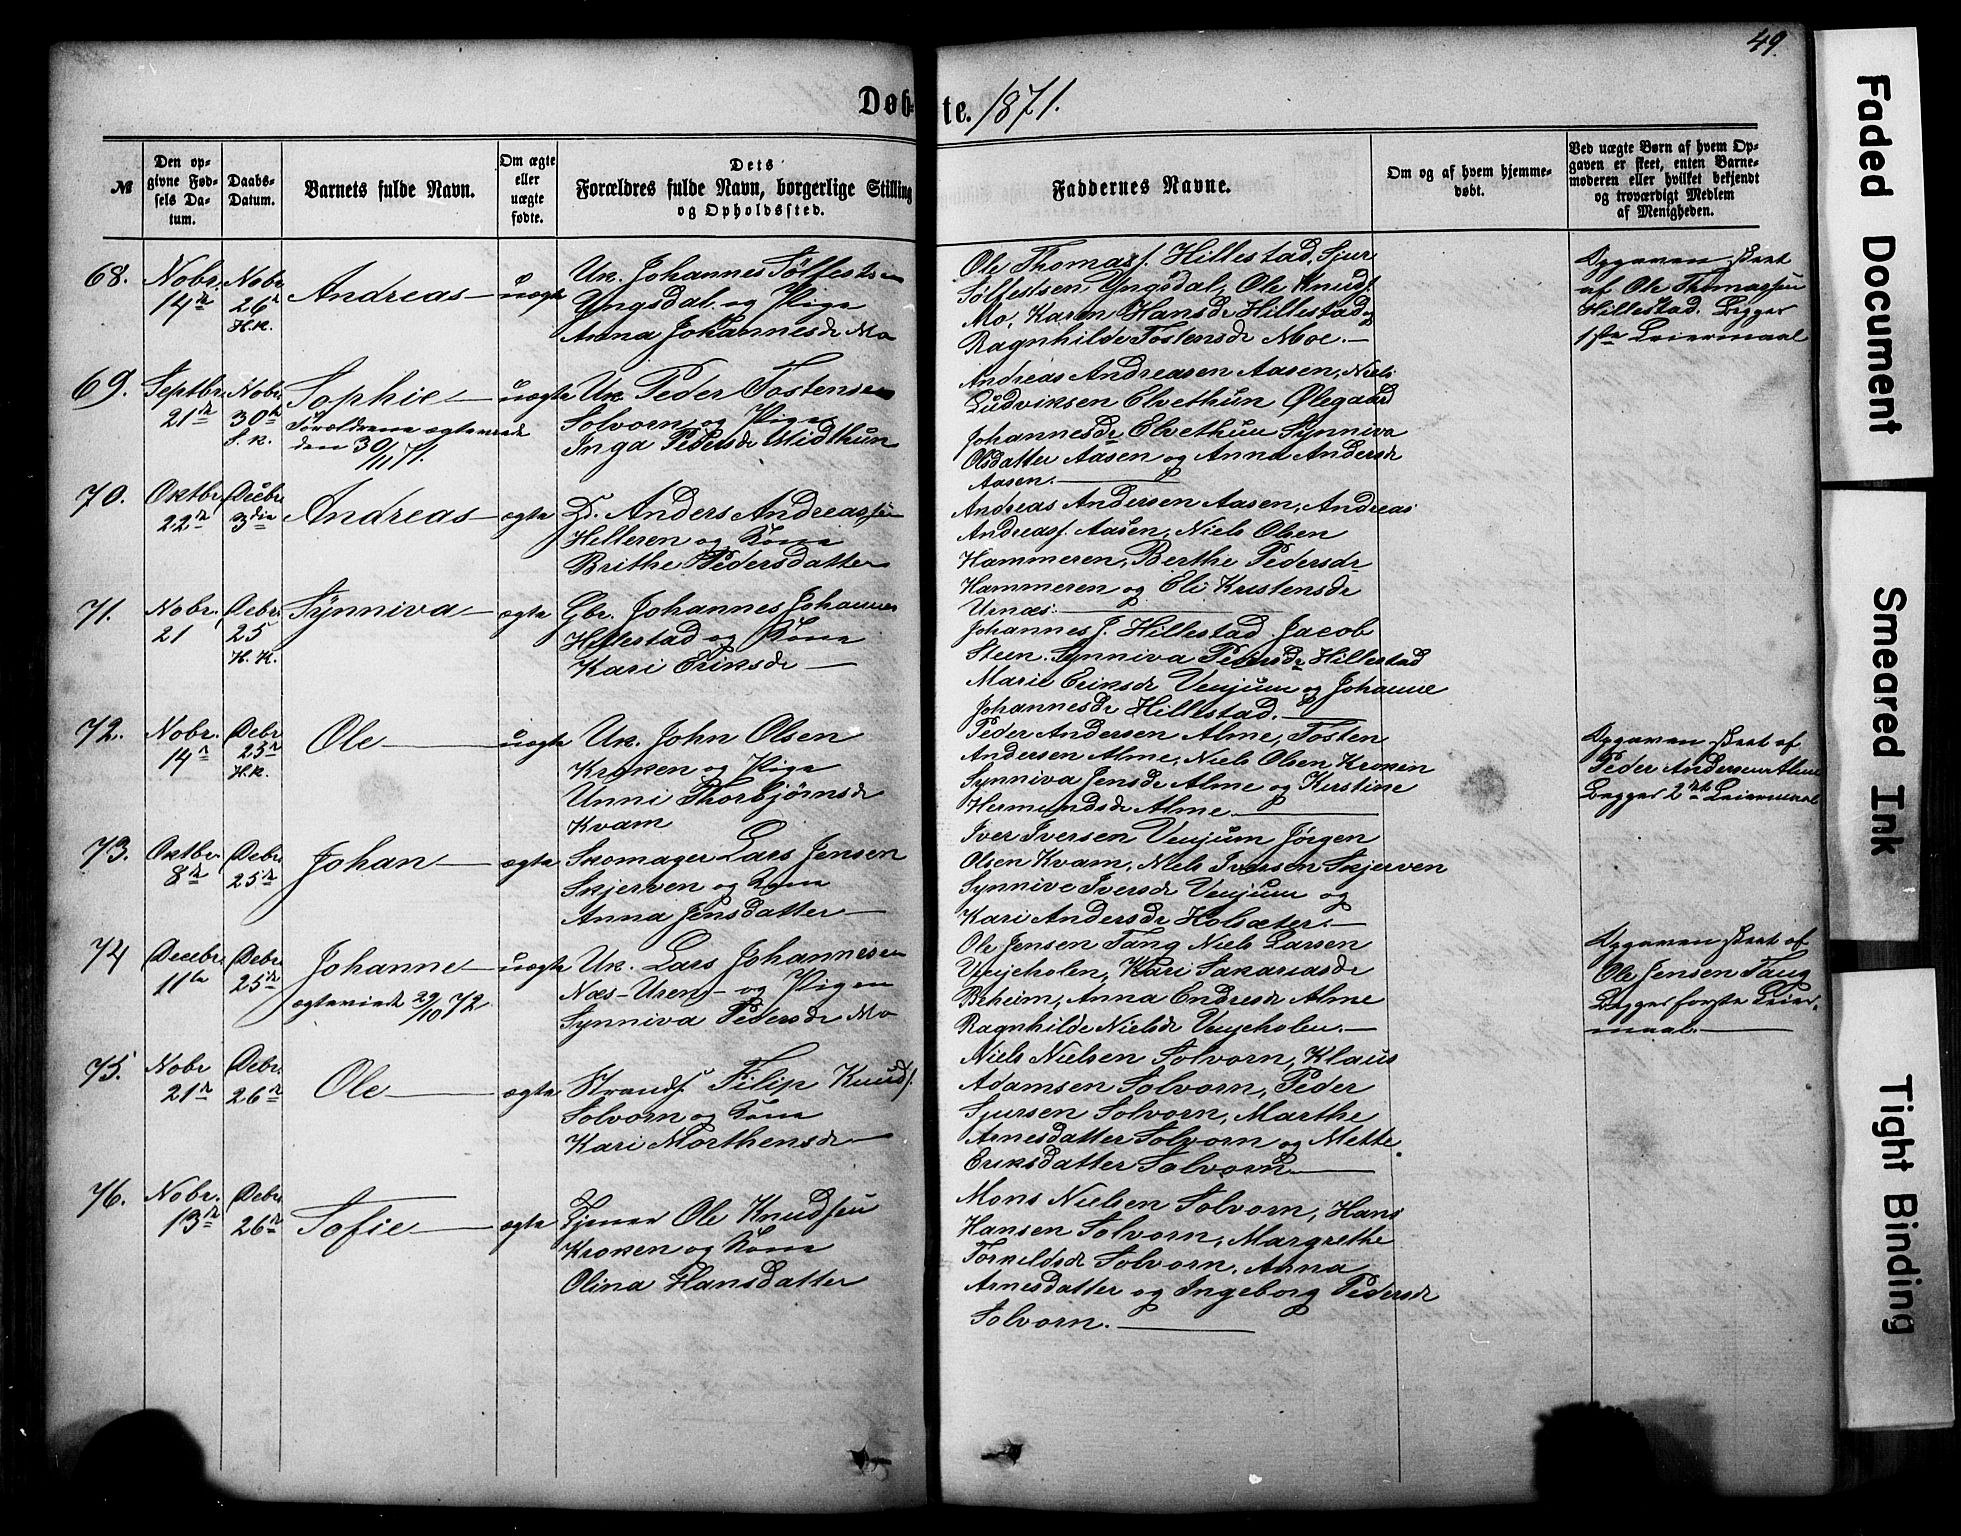 49.
Døb-te. 1871.
№
Den op-
givne Fød-
sels Da-
tum.
Daabs-
Datum.
Barnets fulde Navn.
Om ægte
eller
uægte
fødte.
Dets
Forældres fulde Navn, borgerlige Stilling
og Opholdssted.
Faddernes Navne.
Om og af hvem hjemme-
døbt.
Ved uægte Børn af hvem Op-
gaven er skeet, enten Barne-
moderen eller hvilket bekjendt
og troværdigt Medlem
af Menigheden.
68.
Nobr.
14de
Nobr.
26
H.k.
Andreas
uægte
Uk. Johannes Sølfestsen
Yngsdal og Pige
Anna Johannesdr Mo
Ole Thomass. Hillestad, Sjur
Sølfestsen, Yngsdal, Ole Knuds.
Mo, Karen Hansdr Hillestad og
Ragnhilde Tostensdr Moe.
Opgaven skeet
af Ole Thomassen
Hillestad. Begges
1ste Leiermaal
69.
Septbr.
21de
Nobr.
30te
S. k.
Sophie
Forældrene ægteviede
den 30/11 71.
uægte
Uk. Peder Tostensen
Solvorn og Pige
Inga Pedersdr Midthun
Andreas Andreasen Aasen, Niels
Ludviksen Elvethun Ølegaard
Johannesdr Elvethun Synniva
Olsdatter Aasen og Anna Andersdr
Aasen.
70.
Oktbr.
22de
Decbr.
3die
Andreas
ægte
Anders Andreassen
Helleren og Kone
Brithe Pedersdatter
Andreas Andersen Aasen, Andreas
Andreass. Aasen, Niels Olsen
Hammeren, Berthe Pedersdr
Hammeren og Eli Kristensdr
Urnæs.
71.
Nobr.
21
Debr.
25
H. K.
Synniva
ægte
Gbr. Johannes Johannes
Hillestad og Kone
Kari Eriksdr
Johannes J. Hillestad Jacob
Steen. Synniva Pedersdr Hillestad
Marie Eriksdr Venjum og Johanne
Johannesdr Hillestad.
72.
Nobr.
14de
Debr.
25de
H.k.
Ole
uægte
Uk. John Olsen
Kroken og Pige
Unni Thorbjørnsdr
Kvam
Peder Andersen Alme, Tosten
Andersen Alme, Niels Olsen Kroken
Synniva Jensdr Alme og Kirstine
Hermundsdr Alme
Opgaven skeet af
Peder Andersen Alme
Begges 2det Leiermaal
73.
Oktbr.
8de
Debr.
25de
Johan
ægte
Skomager Lars Jensen
Skjerven og Kone
Anna Jensdatter
Iver Iversen Venjum Jørgen
Olsen Kvam, Niels Iversen Skjerven
Synnive Iversdr Venjum og
Kari Andersdr Holsæter.
74
Decebr.
11te
Debr.
25de
Johanne
ægteviede 29/10 72.
uægte
Uk. Lars Johannesen
Næs-Uren og Pigen
Synniva Pedersdr Mo
Ole Jensen Tang Niels Larsen
Venjeholen, Kari Sakariasdr
Beheim, Anna Endresdr Alme
Ragnhilde Nielsdr Venjeholen.
Opgaven skeet af
Ole Jensen Tang
Begges første Leier-
maal.
75.
Nobr
21de
Debr.
26de
Ole
ægte
Strands. Filip Knuds.
Solvorn og Kone
Kari Morthensdr
Niels Nielsen Solvorn, Klaus
Adamsen Solvorn, Peder
Sjursen Solvorn, Marthe
Arnesdatter Solvorn og Mette
Eriksdatter Solvorn
76.
Nobr.
13de
Debr.
26de
Sofie
ægte
Tjener Ole Knudsen
Kroken og Kone
Olina Hansdatter
Mons Nielsen Solvorn, Hans
Hansen Solvorn, Margrethe
Torkeldsdr Solvorn, Anna
Arnesdatter og Ingeborg Pedersdr
Solvorn.
Faded Document
Smeared Ink
Tight Binding